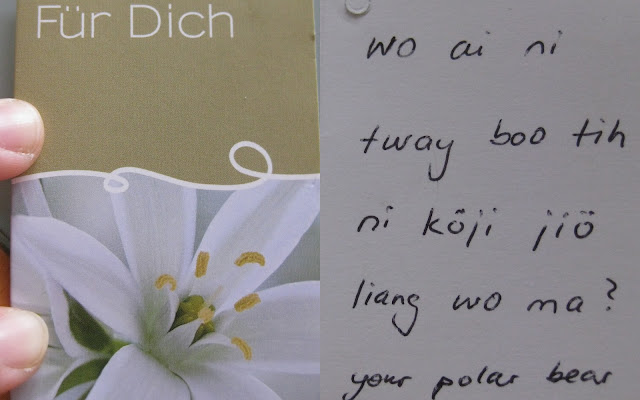 Für Dich
wo ai ni
tway boo tih
ni köji jiö
liang wo ma?
your polar bear